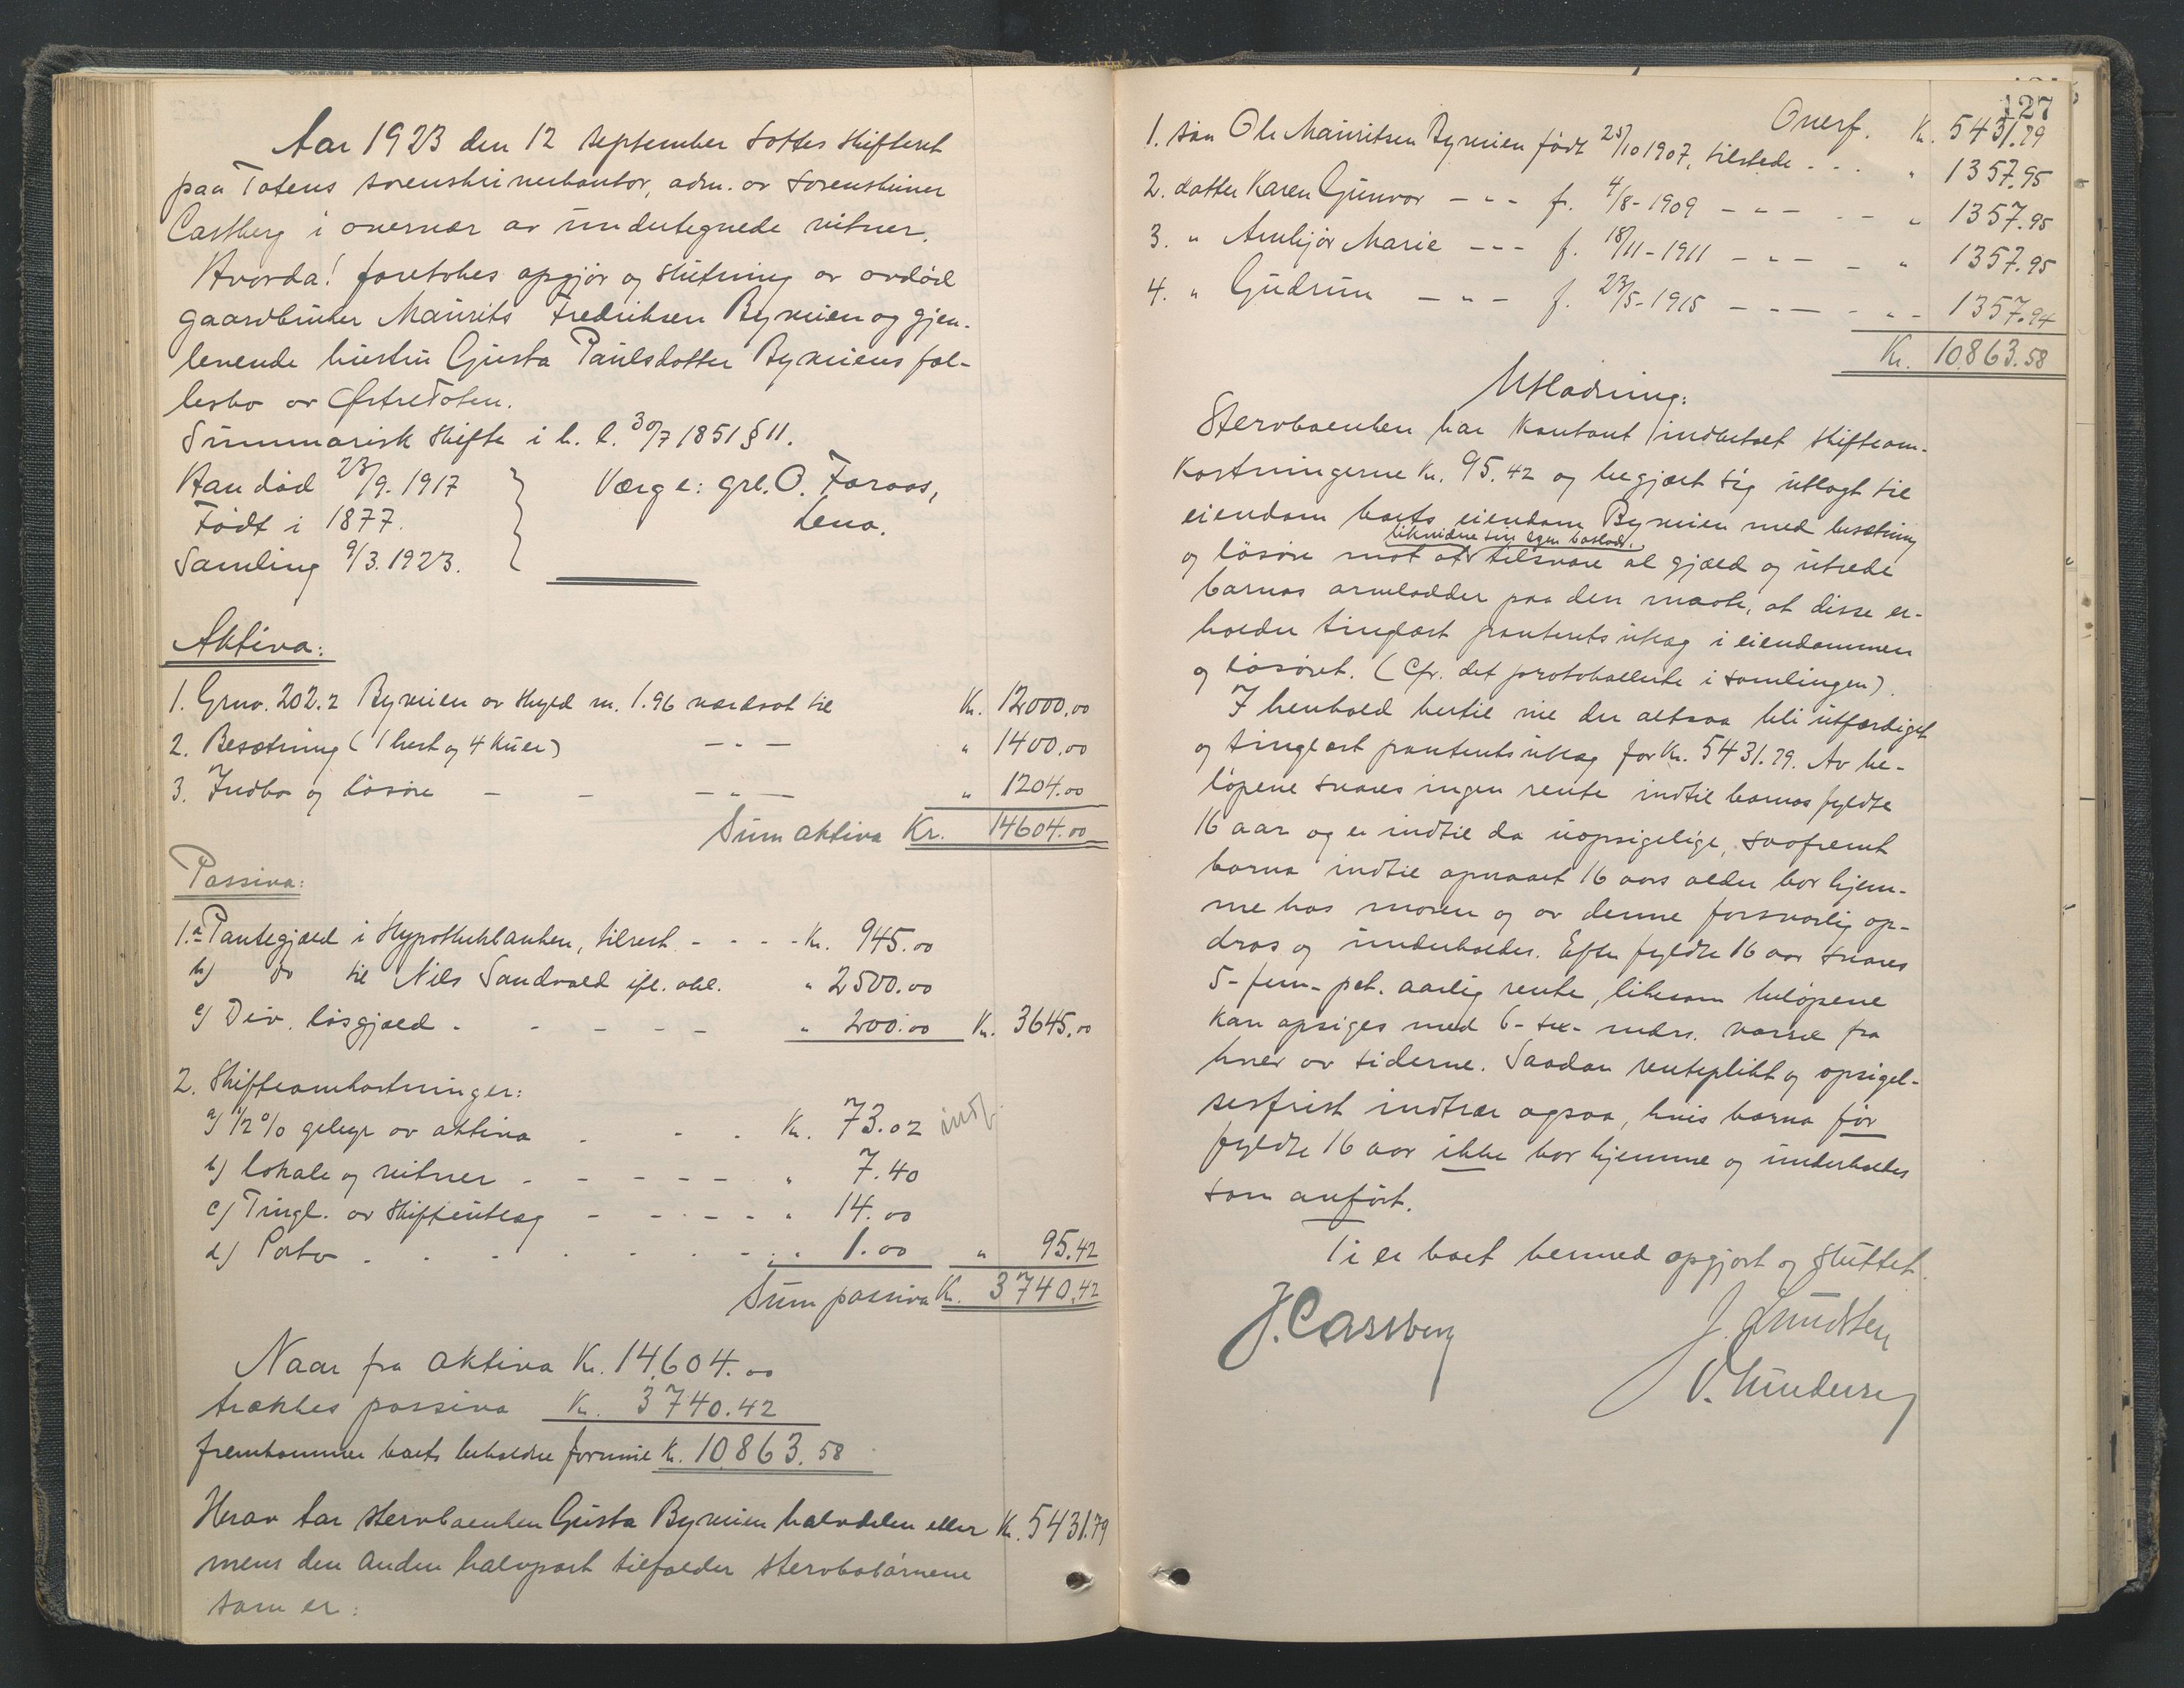 Aar 1923 den 12 september sattes skifteret
paa Totens sorenskriverkontor, adm. av sorenskriver
Castberg i overvær av undertegnede vitner.
Hvorda! foretokes opgjør og slutning av avdød
gaardbruker Maurits Fredriksen Bymien og gjen-
levende hustru Gusta Paulsdatter Bymiens fæl-
lesbo av ØstreToten.
Summarisk skifte i h. l. 30/7 1851 § 11.
Han død 23/9. 1917
Født i 1877.
Samling 9/3. 1923.
Værge: grb. O. Faraas,
Lena.
Aktiva:
1. Grno. 202.2 Bymien av skyld m. 1.96 værdsat til Kr. 12000.00
2. Besætning (1 hest og 4 kuer) - " - " 1400.00
3. Indbo og løsøre - - - " - " 1204.00
Sum aktiva Kr. 14604.00
Passiva:
1. a Pantegjæld i Hypothekbanken, tilrest - - - - Kr. 945.00
b) do til Nils Sandvold ifl. obl. " 2500.00
c) Div. løsgjæld - - - - - " 200.00 Kr. 3645.00
2. Skifteomkostninger:
a) 1/2 % gebyr av aktiva - - - Kr. 73.02 indb.
b) lokale og vitner - - - - - " 7.40
c) Tingl. av skifteutlæg - - - - " 14.00
d) Porto - - - - - " 1.00 " 95.42
Sum passiva Kr. 3740.42
Naar fra aktiva Kr. 14604.00
trækkes passiva Kr. 3740.42
fremkommer boets beholdne formue Kr. 10863.58
Herav tar stervboenken Gusta Bymien halvdelen eller Kr. 5431.79
mens den anden halvpart tilfalder stervbobarnene
som er:
127
Overf. Kr. 5431.79
1. søn Ole Mauritsen Bymien født 25/10 1907, tilstede - - - " 1357.95
2. datter Karen Gunvor - " - f. 4/8 - 1909 - " - - - " 1357.95
3. " Arnbjør Marie - " - f. 18/11 - 1911 - " - - " 1357.95
4. " Gudrun - " - f. 23/5 - 1915 - " - - " - 1357.94
Kr. 10863.58
Utlodning:
Stervboenken har kontant indbetalt skifteom-
kostningerne Kr. 95.42 og begjært sig utlagt til
eiendom boets eiendom Bymien med besætning
likvidere sin egen boslodd,
og løsøre mot at tilsvare al gjæld og utrede
barnas arvelodder paa den maate, at disse er-
holder tinglæst panteutsutlæg i eiendommen
og løsøret. (Cfr. det protokollerte i samlingen).
I henhold hertil vil der altsaa bli utfærdiget
og tinglæst panteutsutlæg for Kr. 5431.79. Av be-
løpene svares ingen rente indtil barnas fyldte
16 aar og er indtil da uopsigelige, saafremt
barna indtil opnaaet 16 aars alder bor hjem-
me hos moren og av denne forsvarlig op-
dras og underholdes. Efter fyldte 16 aar svares
5 - fem - pct. aarlig rente, likesom beløpene
kan opsiges med 6 - sex - mdrs. varsel fra
hver av siderne. Saadan renteplikt og opsigel-
sesfrist indtrær ogsaa, hvis barna før
fyldte 16 aar ikke bor hjemme og underholdes
som anført.
Ti er boet hermed opgjort og sluttet.
J. Castberg
J. Knudsen